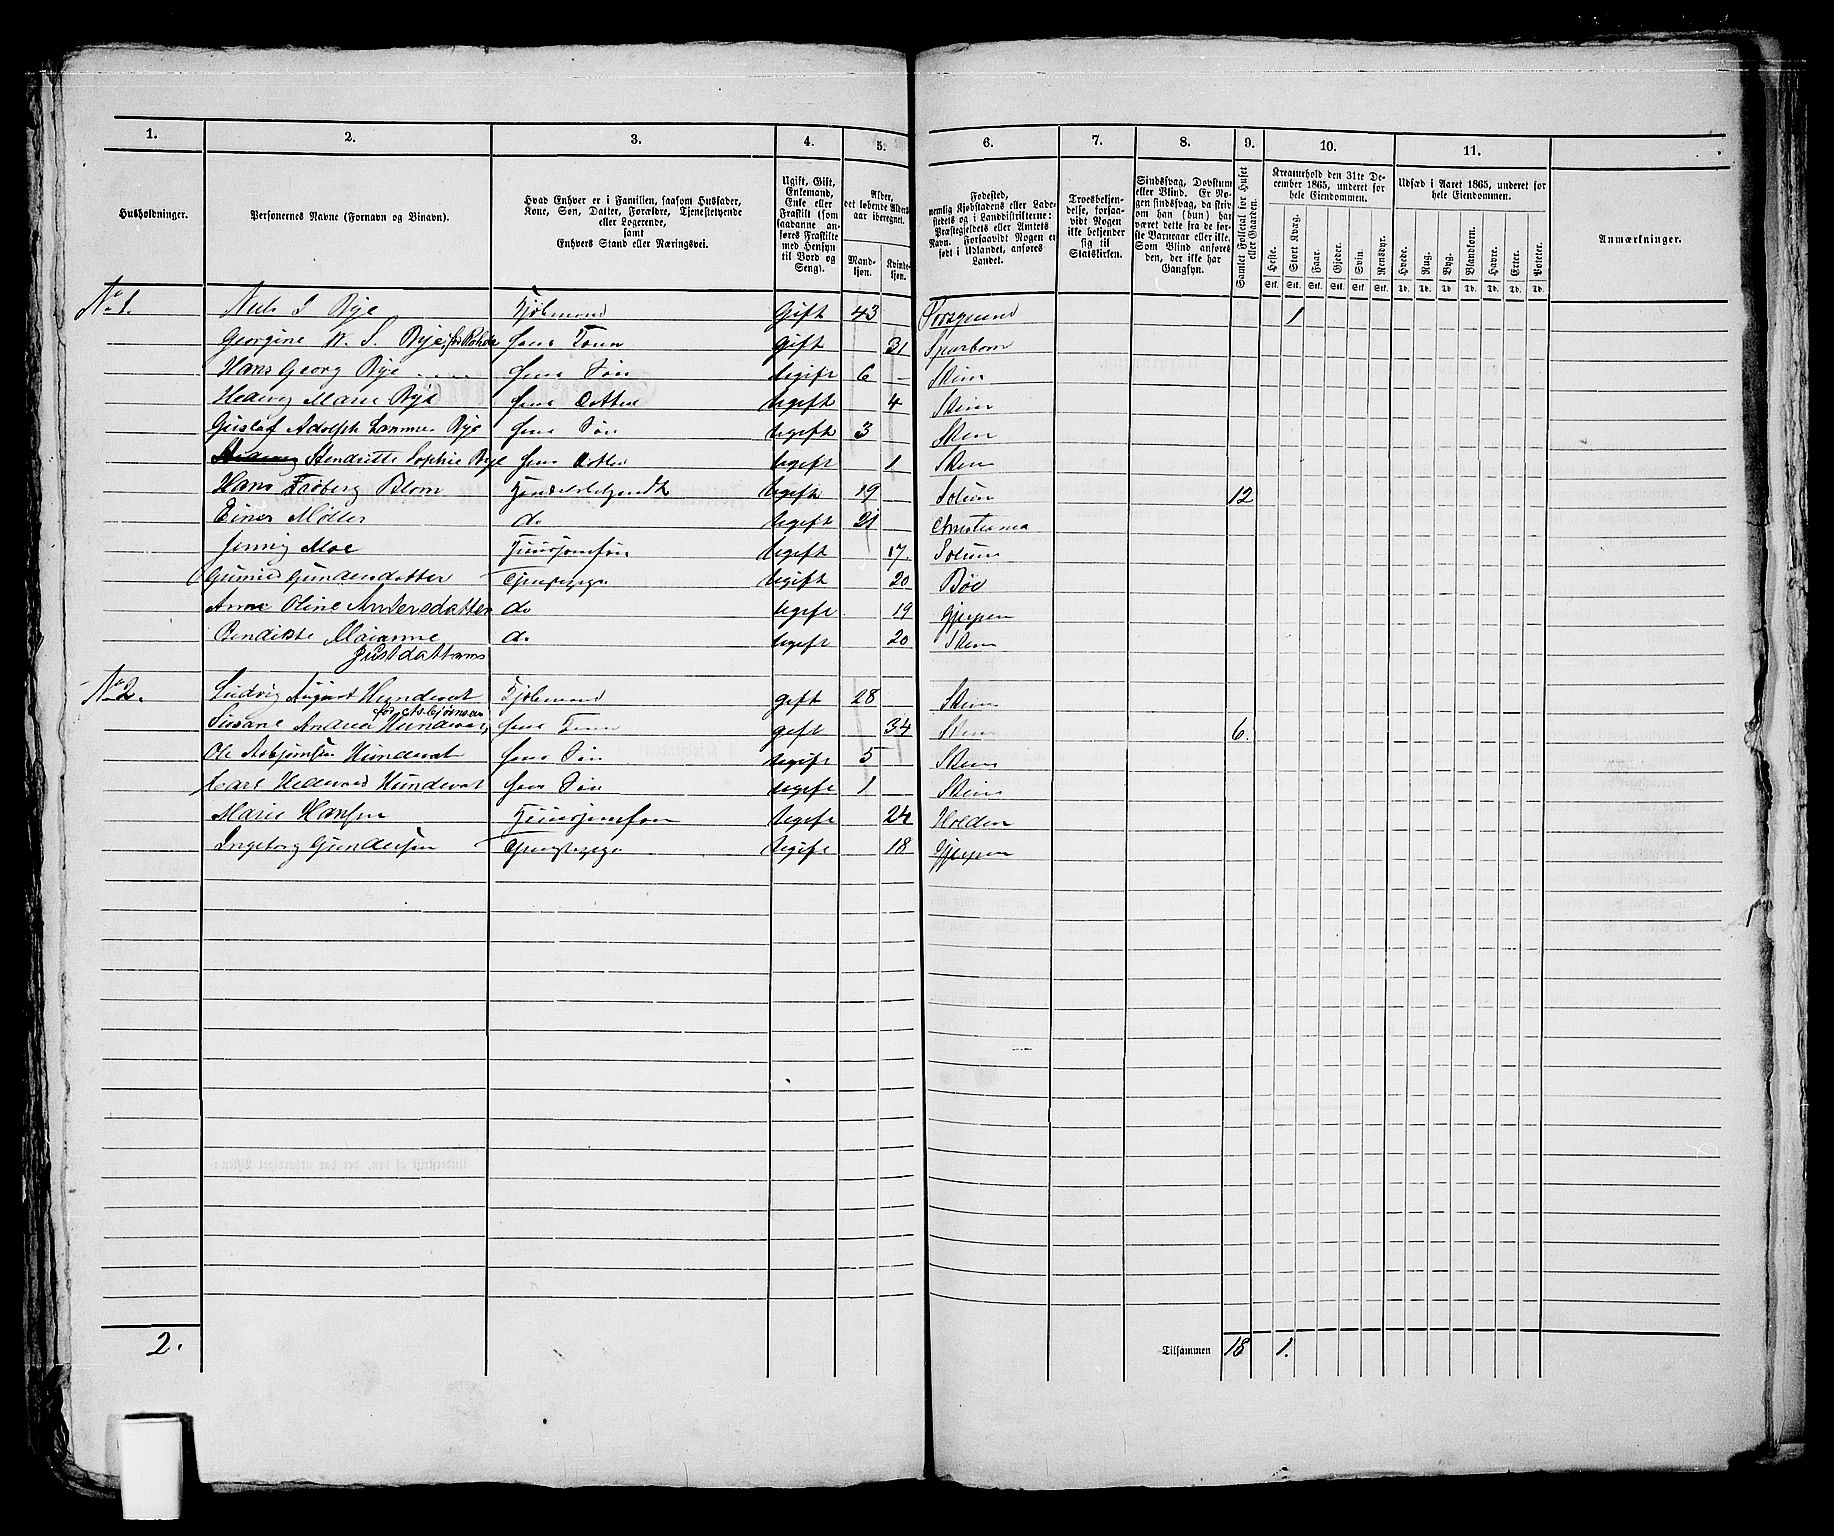 1. 2. 3. 4. 5. 6. 7. 8. 9. 10. 11.
Husholdninger.
Personernes Navne (Fornavn og Binavn).
Hvad Enhver er i Familien, saasom Husfader,
Kone, Søn, Datter, Forældre, Tjenestetyende
eller Logerende,
samt
Enhvers Stand eller Næringsvei.
Ugift, Gift,
Enkemand,
Enke eller
Fraskilt (som
saadanne an-
føres Fraskilte
med Hensyn
til Bord og
Seng).
Alder,
det løbende Alders-
aar iberegnet.
Mand-
kjøn.
Kvinde-
kjøn.
Fødested,
nemlig Kjøbstadens eller Lade-
stedets og i Landdistrikterne:
Præstegjeldets eller Amtets
Navn. Forsaavidt Nogen er
født i Udlandet, anføres
Landet.
Troesbekjen-
delse, forsaa-
vidt Nogen
ikke bekjender
sig til
Statskirken.
Sindssvag, Døvstum
eller Blind. Er No-
gen sindssvag, da skriv
om han (hun) har
været dette fra de før-
ste Barneaar eller ikke.
Som Blind anføres
den, der ikke har
Gangsyn.
Samlet Folketal for Huset
eller Gaarden.
Kreaturhold den 31te De-
cember 1865, underet for
hele Eiendommen.
Heste. Stort Kvæg. Faar. Gjeder. Svin. Rensdyr.
Stk. Stk. Stk. Stk. Stk. Stk.
Udsæd i Aaret 1865, underet for
hele Eiendommen.
Hvede. Rug. Byg. Blandkorn. Havre. Erter. Poteter.
Td. Td. Td. Td. Td. Td. Td.
Anmærkninger.
No 1. Niels J Rye Kjøbmand Gift 43 Porsgrund 1
Georgine W. S. Rye, Hans Kone gift 31
Hans Georg Rye Hans Søn Ugift 6 Skien
Hedevig Marie Rye Hans Datter Ugift 4 Skien
Gustaf Adolph Lammers Rye Hans Søn Ugift 3 Skien
Henriette Sophie Rye Hans Datter Ugift 1 Skien
Hans Blom Handelsbetjendt Ugift 19 Solum 12
Einer Møller do Ugift 21 Christiania
Jenny Moe Huusjomfru Ugift 17. Solum
Gundersdatter Tjenestepige Ugift 20 Bøe
Anne Oline Andersdatter do Ugift 19 Gjerpen
Bendikte Marianne do Ugift 20 Skien
No 2. Ludvig August Hundevat Kjøbmand gift 28 Skien
Susane Andrea Hundevat, Hans Kone gift 34 Skien 6.
før Asbjørnsen
Ole Asbjørnsen Hundevat Hans Søn Ugift 5 Skien
Carl Hundevat Hans Søn Ugift 1 Skien
Marie Hansen Huusjomfru Ugift 24 Holden
Ingeborg Gundersen Tjenestepige Ugift 18 Gjerpen
2. Tilsammen 18 1.